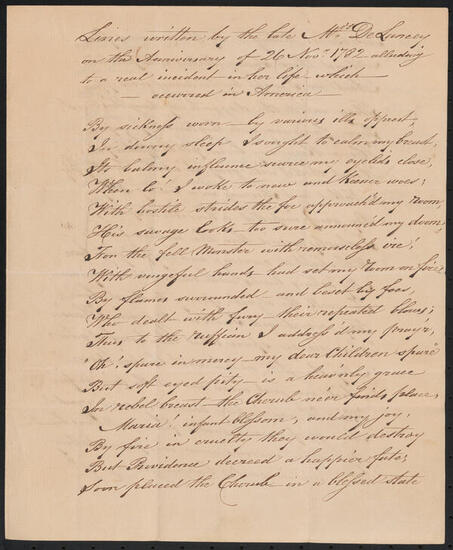 Lines written by the late Mrs. De Lancey
on the Anniversary of 26 Novr. 1782 alluding
to a real incident in her life which
occurred in America
By sickness worn – by various ills opprest,
In downy sleep I sought to calm my breast,
Its balmy influence scarce my eyelids close,
When lo! I woke to new and keener woes;
With hostile strides the foe approach'd my room,
His savage looks too sure announc'd my doom,
For the fell Monster with remorseless ire!
With vengeful hands had set my room on fire,
By flames surrounded and beset by foes,
Who dealt with fury their repeated blows;
Thus to the ruffian I address'd my prayr,
"Oh! spare in mercy – my dear Children spare"
But soft eyed pity – is a heavenly grace
In rebel breast the Cherub ne'er finds place,
Maria! infant blossom, and my joy,
By fire in cruelty they would destroy
But Providence decreed a happier fate;
Soon placed the Cherub in a blessed state